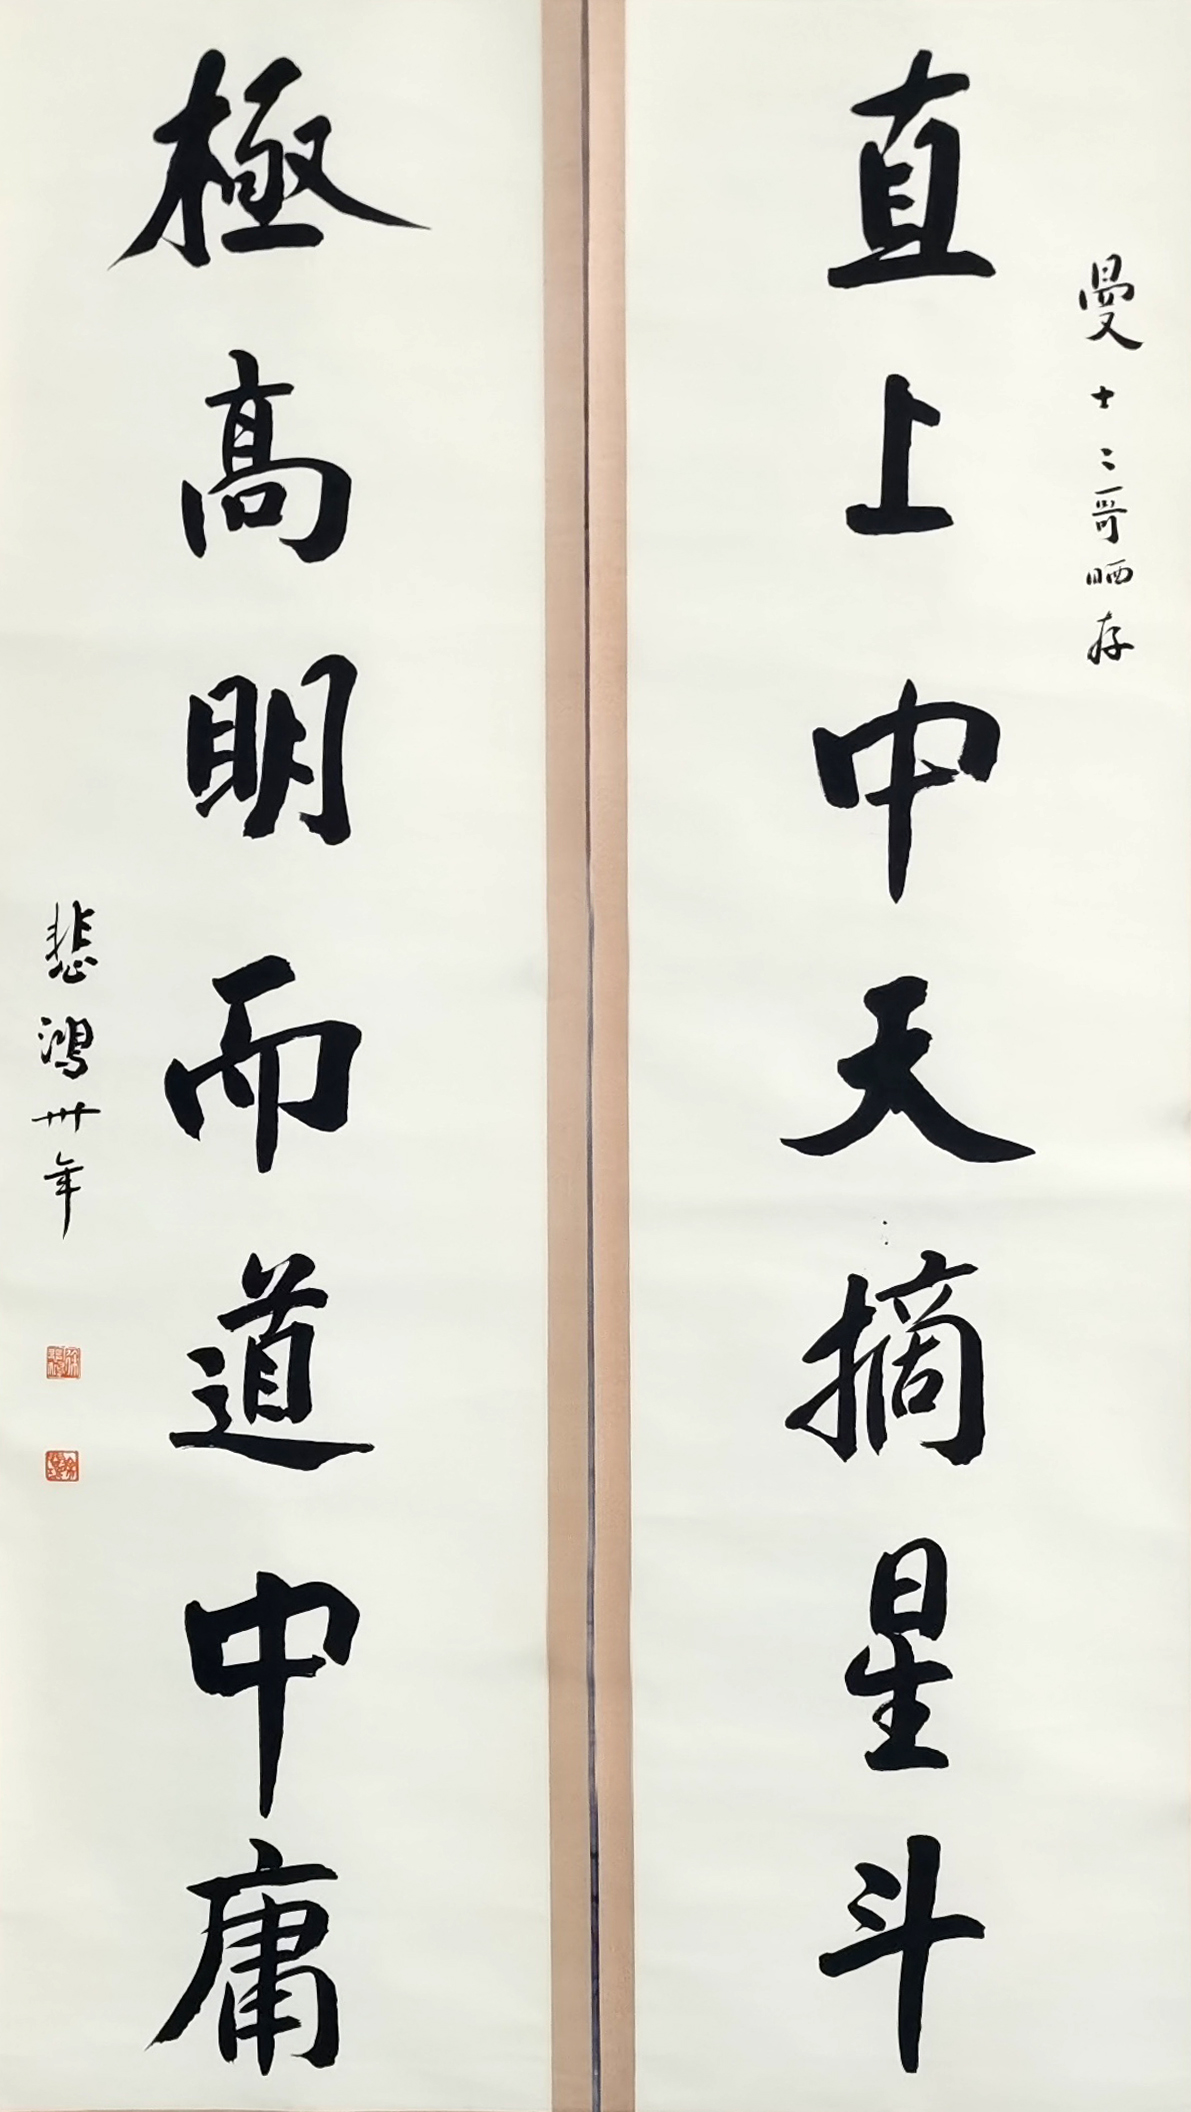 曼士二哥晒存
直上中天摘星斗
極高明而道中庸
悲鴻卅年